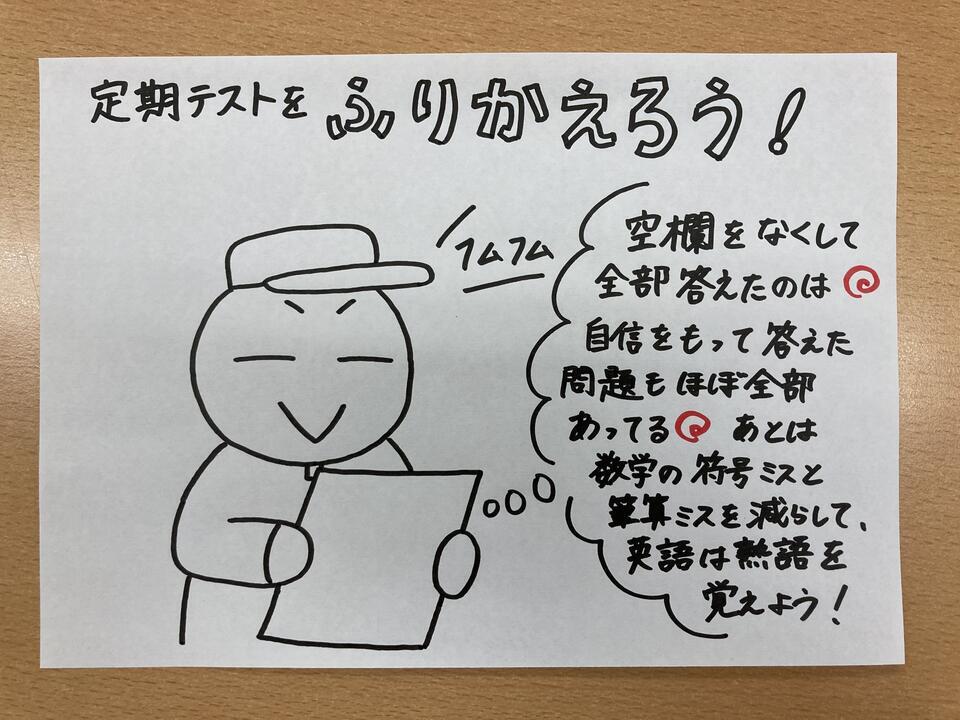 定期テストを ふりかえろう!
フムフム
空欄をなくして
全部答えたのは
自信をもって答えた
問題もほぼ全部
あってる あとは
数学の符号ミスと
筆算ミスを減らして、
英語は熟語を
覚えよう!